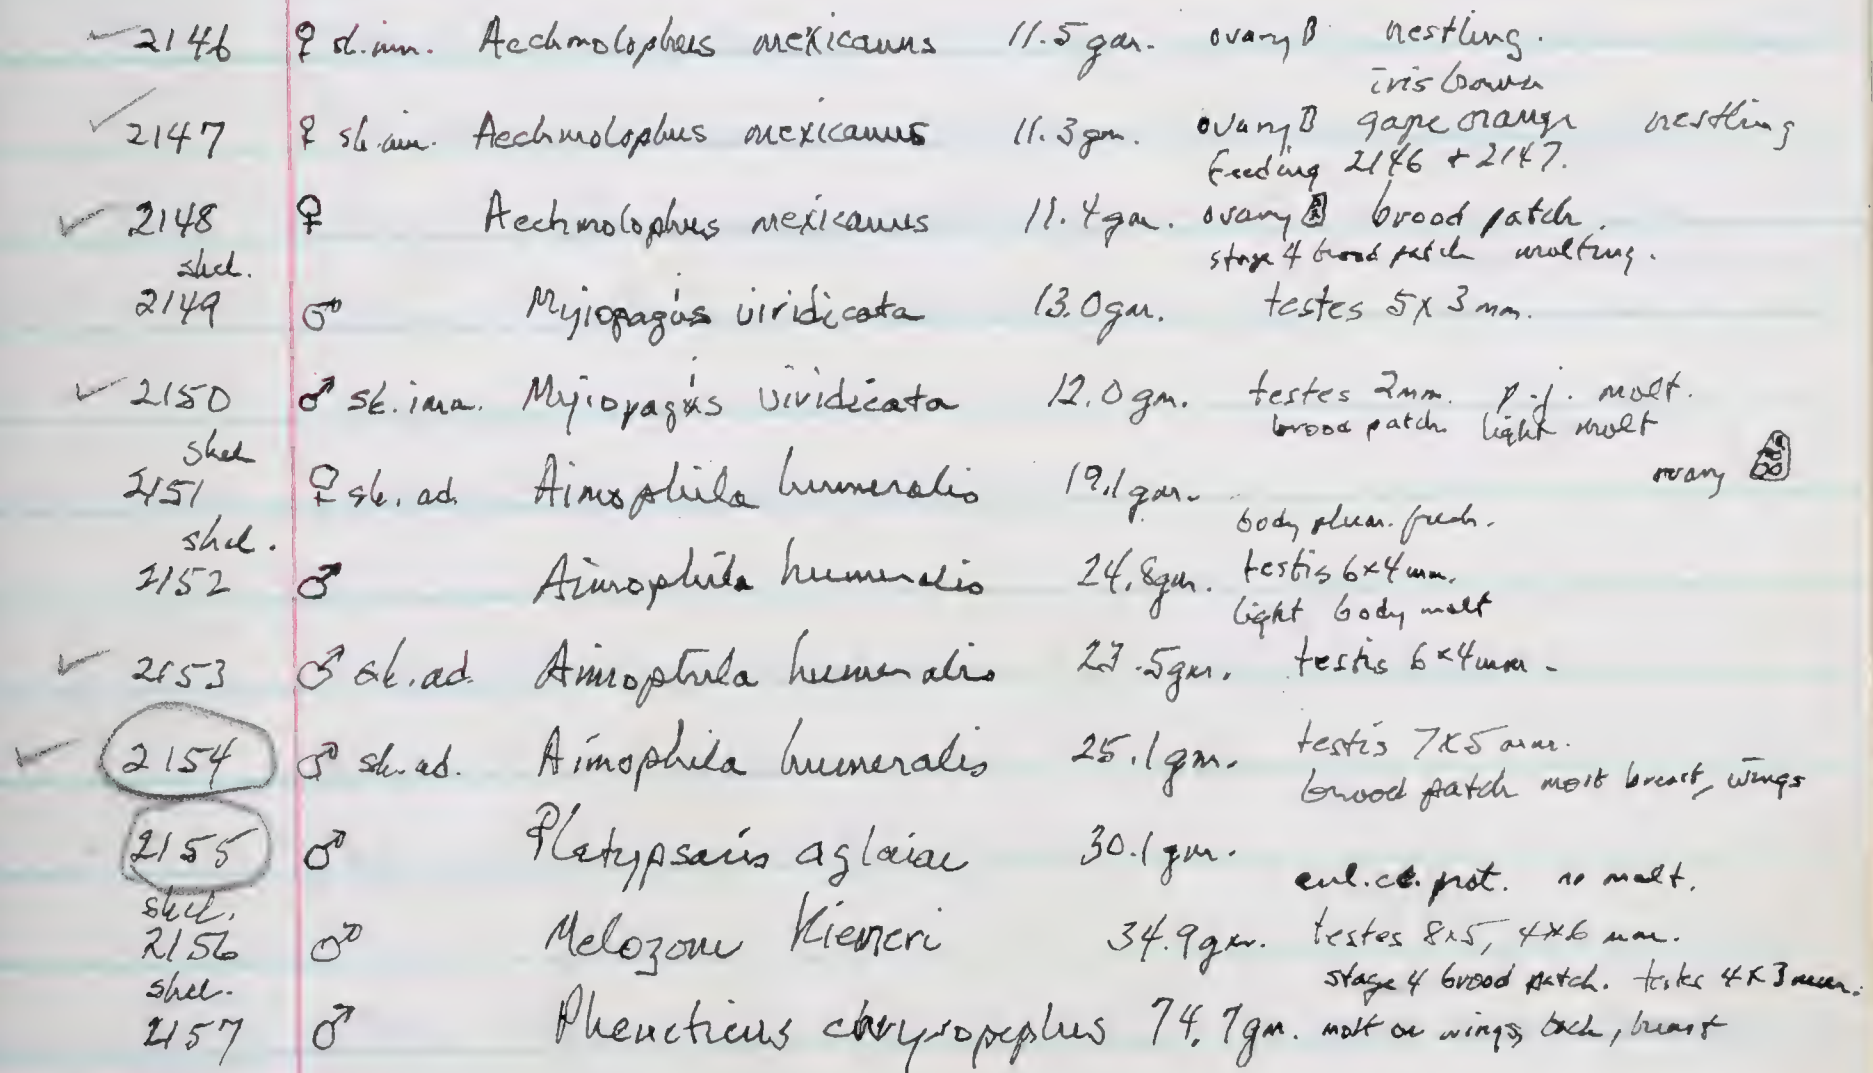 2146 ♀ sk. im. Aechmolophus mexicanus 11.5 gm. ovary nestling.
iris brown
2147 ♀ sk. im. Aechmolophus mexicanus 11.3 gm. ovary gape orange nestling
feeding 2146 + 2147.
2148 ♀ Aechmolophus mexicanus 11.4 gm. ovary brood patch.
stage 4 brood patch molting.
skel.
2149 ♂ Myiopagis viridicata 13.0 gm. testes 5x3 mm.
2150 ♂ sk. imm. Myiopagis viridicata 12.0 gm. testes 2 mm. p.j. molt.
brood patch light molt
skel
2151 ♀ sk. ad. Aimophila humeralis 19.1 gm. ovary
body plum. fresh.
skel.
2152 ♂ Aimophila humeralis 24.8 gm. testis 6x4 mm.
light body molt
2153 ♂ sk. ad. Aimophila humeralis 23.5 gm. testis 6x4 mm.
2154 ♂ sk. ad. Aimophila humeralis 25.1 gm. testis 7x5 mm.
brood patch molt breast, wings
2155 ♂ Platypsaris aglaiae 30.1 gm.
enl. cl. prot. no molt.
skel.
2156 ♂ Melozone Kieneri 34.9 gm. testes 8x5, 4x6 mm.
stage 4 brood patch. testes 4x3 mm.
skel.
2157 ♂ Pheucticus chrysopeplus 74.7 gm. molt on wings, back, breast